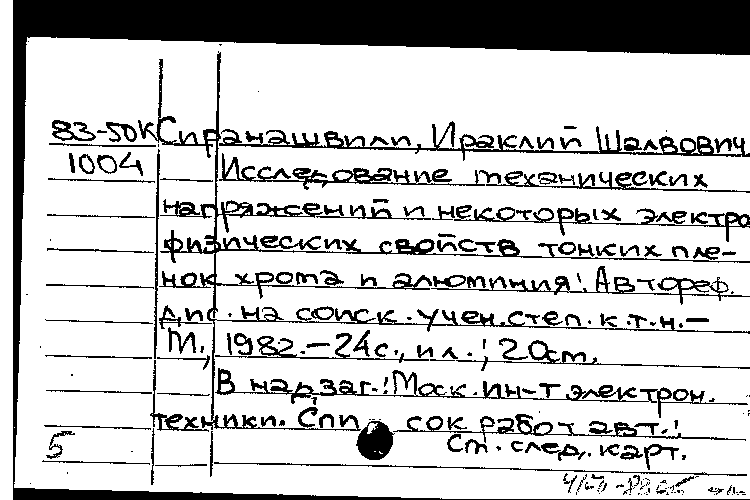 83-50К Сиранашвили, Ираклий Шалвович
1004 Исследование механических
напряжений и некоторых электро
физических свойств тонких пле-
нок хрома и алюминия: Автореф.
дис. на соиск. учен. степ. к.т.н.—
М., 1982.—24с., ил.; 20см.
В надзаг.: Моск. ин-т электрон.
техники. Спи сок работ авт.:
5 См. след. карт.